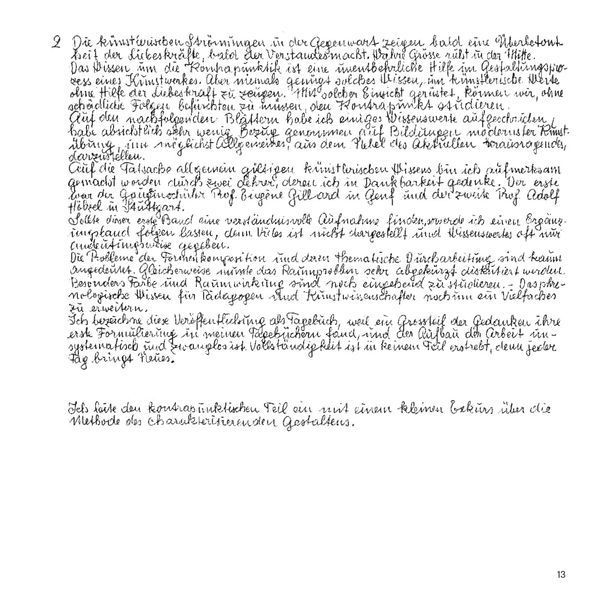 2 Die künstlerischen Strömungen in der Gegenwart zeigen bald eine Überbetont-
heit der Liebeskräfte, bald der Verstandesmacht. Wahre Grösse ruht in der Mitte.
Das Wissen um die Kontrapunktik ist eine unentbehrliche Hilfe im Gestaltungspro-
zess eines Kunstwerkes. Aber niemals genügt solches Wissen, um künstlerische Werte
ohne Hilfe der Liebeskraft zu zeugen. Mit solcher Einsicht gerüstet, können wir, ohne
schädliche Folgen befürchten zu müssen, den Kontrapunkt studieren.
Auf den nachfolgenden Blättern habe ich einiges Wissenswerte aufgeschrieben,
habe absichtlich sehr wenig Bezug genommen auf Bildungen modernster Kunst-
übung, um möglichst Allgemeines, aus dem Nebel des Aktuellen herausragendes,
darzustellen.
Auf die Tatsache allgemein gültigen künstlerischen Wissens bin ich aufmerksam
gemacht worden durch zwei Lehrer, deren ich in Dankbarkeit gedenke. Der erste
war der Prof. Eugène Gilliard in Genf und der zweite Prof. Adolf
Hölzel in Stuttgart.
Sollte dieser erste Band eine verständnisvolle Aufnahme finden, so werde ich einen Ergänz-
ungsband folgen lassen, denn Vieles ist nicht dargestellt und Wissenswertes oft nur
andeutungsweise gegeben.
Die Probleme der Formenkomposition und deren thematische Durcharbeitung sind kaum
angedeutet. Gleicherweise musste das Raumproblem sehr abgekürzt diskutiert werden.
Besonders Farbe und Raumwirkung sind noch eingehend zu studieren. – Das phä-
nologische Wissen für Pädagogen und Kunstwissenschafter noch um ein Vielfaches
zu erweitern.
Ich bezeichne diese Veröffentlichung als Tagebuch, weil ein Grossteil der Gedanken ihre
erste Formulierung in meinen Tagebüchern fand, und der Aufbau der Arbeit un-
systematisch und zwanglos ist. Vollständigkeit ist in keinem Teil erstrebt, denn jeder
Tag bringt Neues.
Ich leite den kontrapunktischen Teil ein mit einem kleinen Exkurs über die
Methode des charakterisierenden Gestaltens.
13